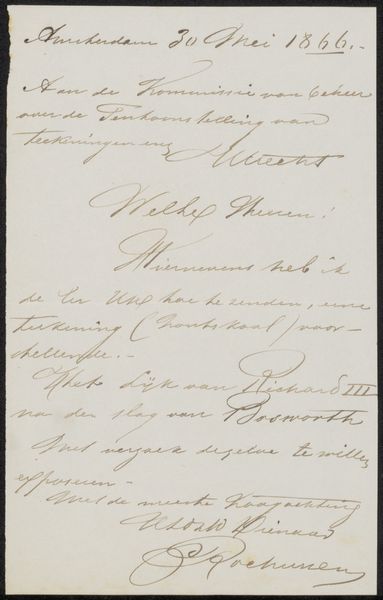 Amsterdam 30 Mei 1866.-
Aan de Kommissie van beheer
over de Tentoonstelling van
teekeningen enz Utrecht
Welhe Heeren!
Hiernevens heb ik
de Eer UHE toe te zenden, eene
teekening (houtskool) voor-
stellende.-
Het Lijk van Richard III
na den slag van Bosworth
Met verzoek dezelve te willen
exposeeren-
Met de meeste Hoogachting
UEd Dienaar
C Rochussen